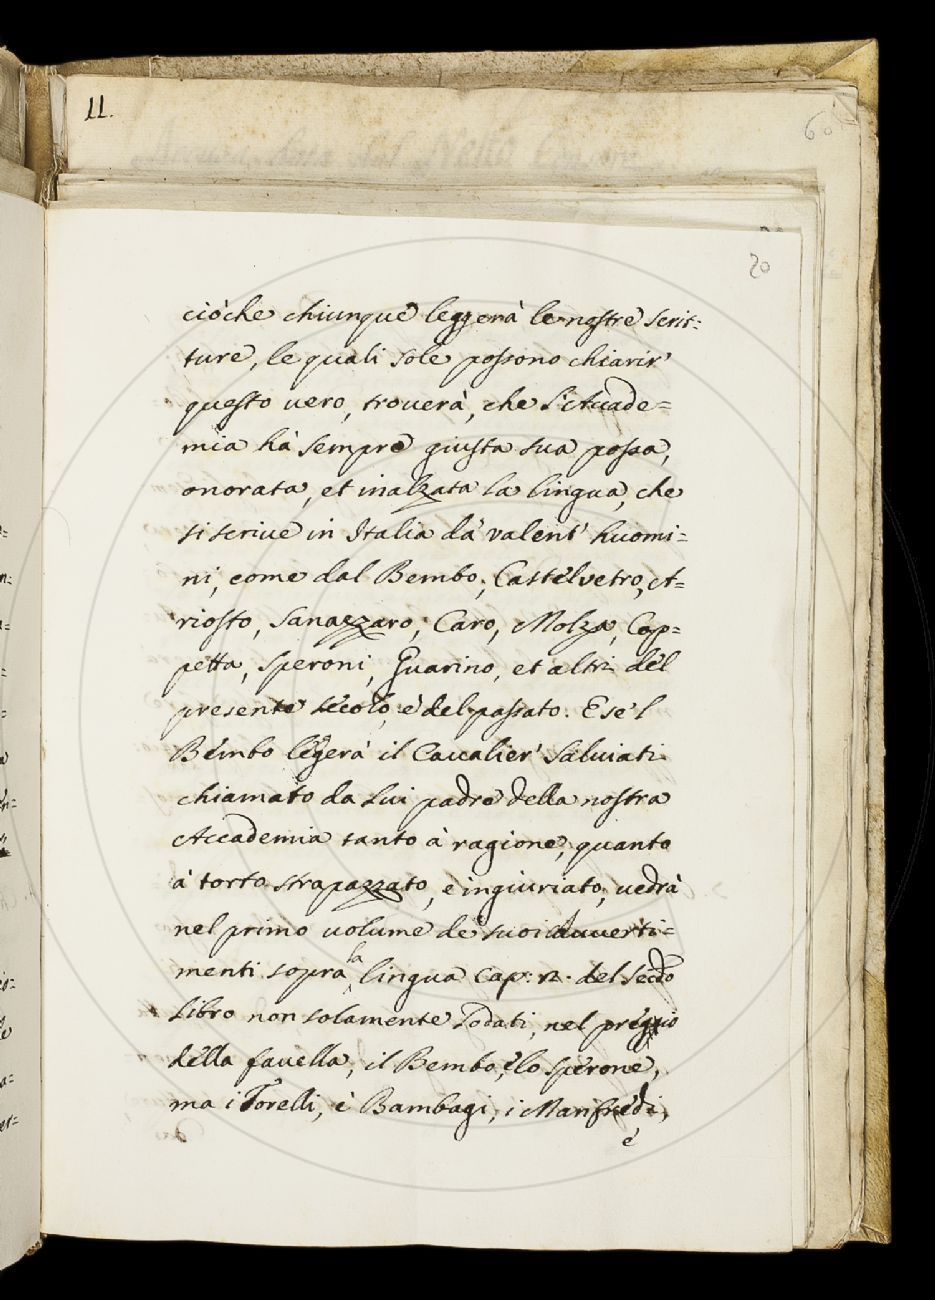 11.
60
20
ciòche chiunque leggerà le nostre scrit:
ture, le quali sole possono chiarir'
questo uero, trouerà, che l'Accade=
mia hà sempre giusta sua possa,
onorata, et inalzata la lingua, che
si scriue in Italia dà valent' huomi=
ni, come dal Bembo, Castelvetro, A=
riosto, Sanazzaro, Caro, Molza, Cop=
petta, Speroni, Guarino, et altri del
presente secolo, e del passato. E se'l
Bembo legerà il Caualier' Saluiati
chiamato da lui padre della nostra
Accademia tanto à ragione, quanto
à torto strapazzato, e ingiuriato, uedrà
nel primo uolume de suoi Auuerti=
menti sopra la lingua cap: 12. del Secdo
Libro non solamente Lodati, nel pregio
della fauella, il Bembo, e lo Sperone,
ma i Torelli, è Bambagi, i Manfredi,
è